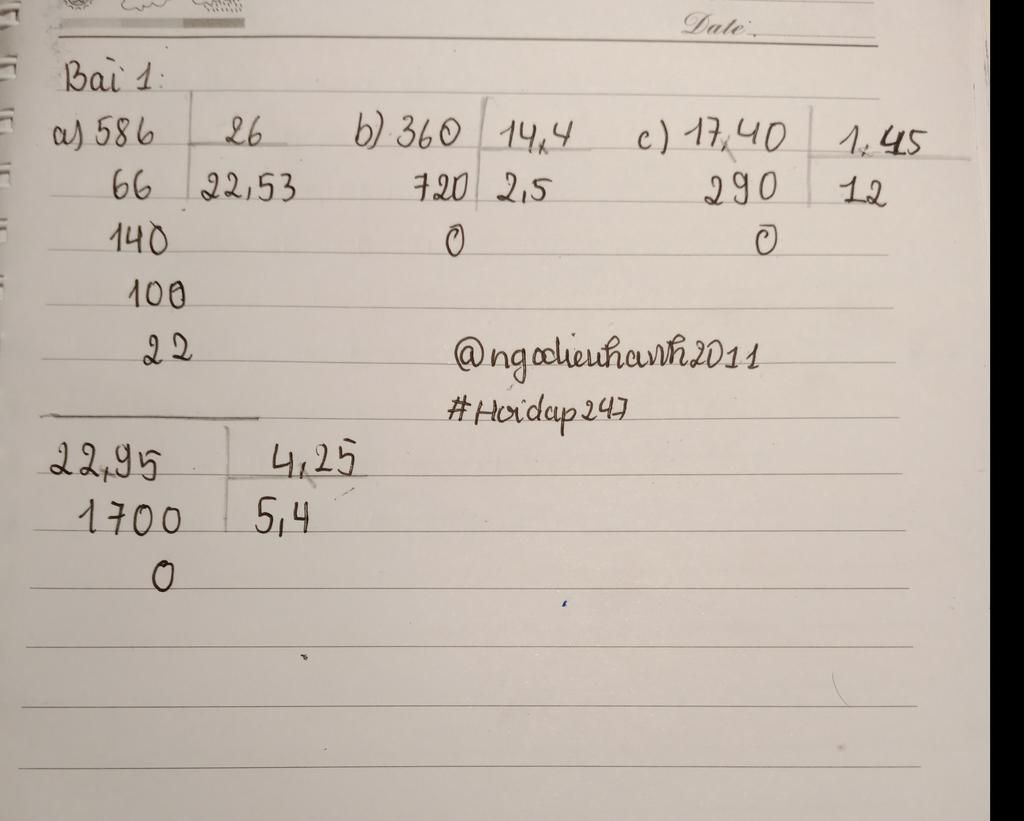 Date:
Bài 1:
a) 586 26 b) 360 14,4 c) 17,40 1,45
66 22,53 720 2,5 290 12
140 0 0
100
22
@ngodieuhanh2011
#Hoidap247
22,95 4,25
1700 5,4
0